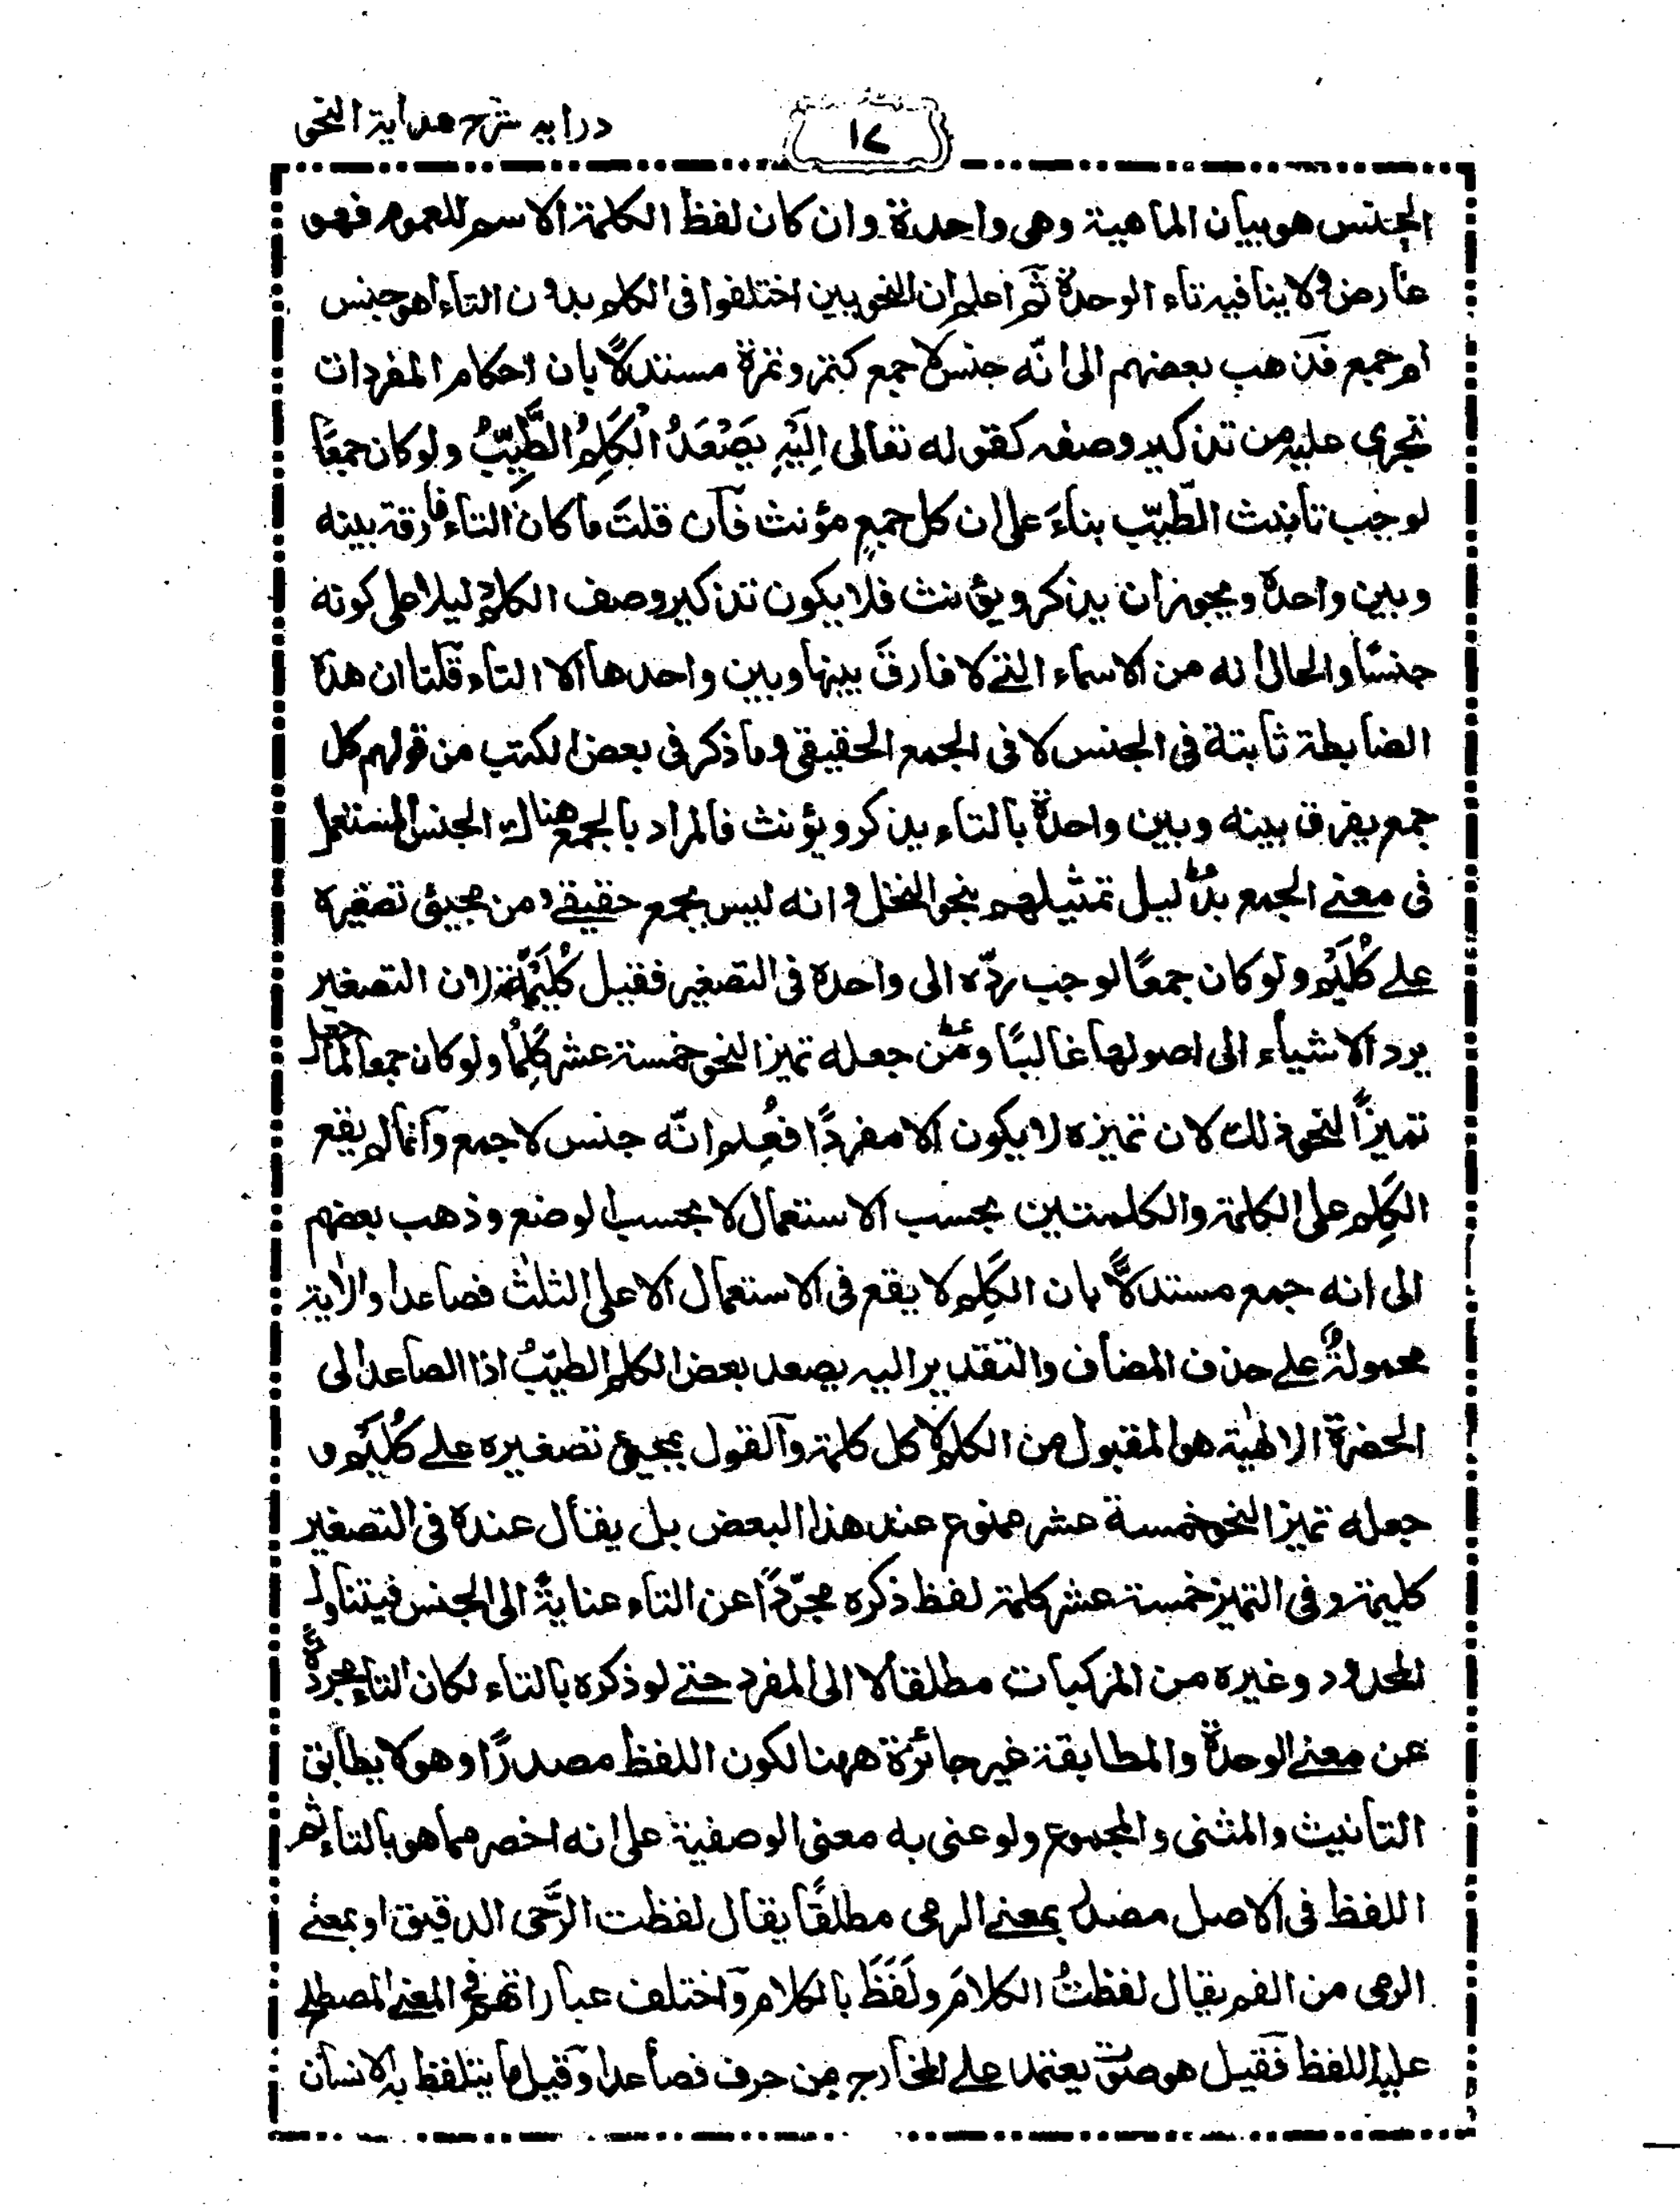 درايه شرح هداية النحو
١٧
الجنس هو بيان الماهية وهى واحدة وان كان لفظ الكلمة الاسم للعموم فهو
عارض ولا ينافيه تاء الوحدة ثم اعلم ان النحويين اختلفوا فى الكلم بدون التاء اهو جنس
ام جمع فذهب بعضهم الى انّه جنس لا جمع كتمر وتمرة مستدلًا بان احكام المفردات
تجرى عليه من تذكير وصفه كقوله تعالى اِلَيْهِ يَصْعَدُ الْكَلِمُ الطَّيِّبُ ولو كان جمعًا
لوجب تأنيث الطّيّب بناءً على ان كل جمعٍ مؤنث فآن قلتَ ما كان التاء فارقة بينه
وبين واحدة ويجوز ان يذكر ويؤنث فلا يكون تذكير وصف الكلم دليلا على كونه
جنسًا والحال انه من الاسماء التے لا فارقَ بينها وبين واحدها الا التاء قلنا ان هذه
الضابطة ثابتة فى الجنس لا فى الجمع الحقيقى وما ذكر فى بعض الكتب من قولهم كل
جمع يفرق بينه وبين واحدة بالتاء يذكر ويؤنث فالمراد بالجمع هناك الجنس المستعمل
فى معنے الجمع بدليل تمثيلهم بنحو النخل و انه ليس بجمع حقيقے ومن مجيئ تصغيره
علے كُلَيْم ولو كان جمعًا لوجب ردّه الى واحدة فى التصغير فقيل كُلَيْمَة لان التصغير
يرد الاشياء الى اصولها غالبًا ومن جعله تميز النحو خمسة عشر كَلِمًا ولو كان جمعا لما جعل
تميزًا لنحو ذلك لان تميزه لا يكون الا مفردًا فعُلم انّه جنس لا جمع وآنما لم يقع
الكَلِم على الكلمة والكلمتين بحسب الاستعمال لا بحسب الوضع وذهب بعضهم
الى انه جمع مستدلًّا بان الكَلِم لا يقع فى الاستعمال الا على الثلث فصاعدا والآية
محمولةٌ علے حذف المضاف والتقدير اليه يصعد بعض الكلم الطيّبُ اذا الصاعد الى
الحضرة الالهية هو المقبول من الكلم لا كل كلمة وآلقول بمجيئ تصغيره علے كُلَيْم و
جعله تميز النحو خمسة عشر ممنوع عند هذا البعض بل يقال عنده فى التصغير
كليمة وفى التميز خمسة عشر كلمة لفظ ذكره مجرّدًا عن التاء عنايةً الى الجنس فيتناول
المحدود وغيره من المركبات مطلقا لا الى المفرد حتے لو ذكره بالتاء لكان التاء مجردة
عن معنے الوحدة والمطابقة غير جائزة ههنا لكون اللفظ مصدرًا وهو لا يطابق
التأنيث والمثنى والمجموع ولو عنى به معنى الوصفية على انه اخصر مما هو بالتاء ثم
اللفظ فى الاصل مصدر بمعنے الرمى مطلقًا يقال لفظت الرَّحى الدقيق او بمعنے
الرمى من الفم يقال لفظتُ الكلامَ ولَفَظَ بالكلام وآختلف عباراتهم فى المعنے المصطلح
عليه اللفظ فقيل هو صوت يعتمد علے المخارج من حرف فصاعدا وقيل ما يتلفظ به الانسان